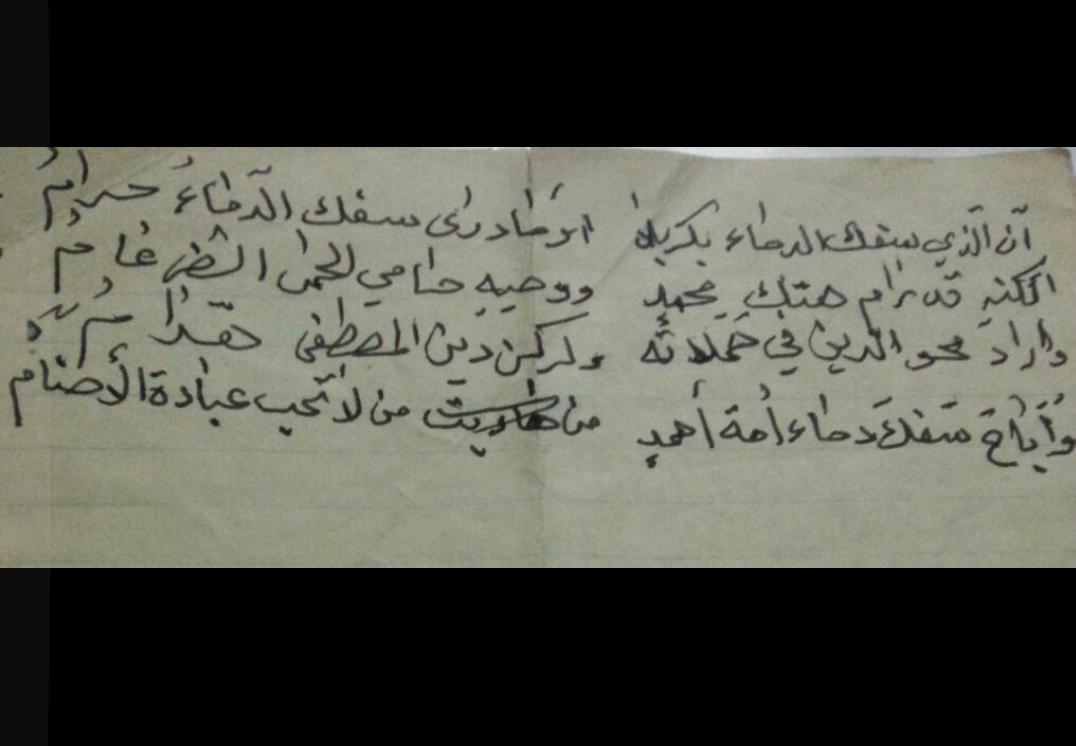 ان الذي سفك الدماء بكربلا أو ما درى سفك الدماءُ حرامُ
لكنه قد رام هتكِ محمدٍ ووصيهِ حامي الحمى الضرغامُ
واراد محو الدين في حملاته ولركن دين المصطفى هدّامُ
وأباحَ سفكَ دماء أمة أحمدٍ من لا تحب عبادة الأصنام